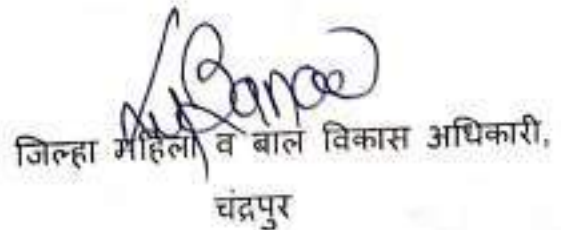 जिल्हा महिला व बाल विकास अधिकारी,
चंद्रपुर